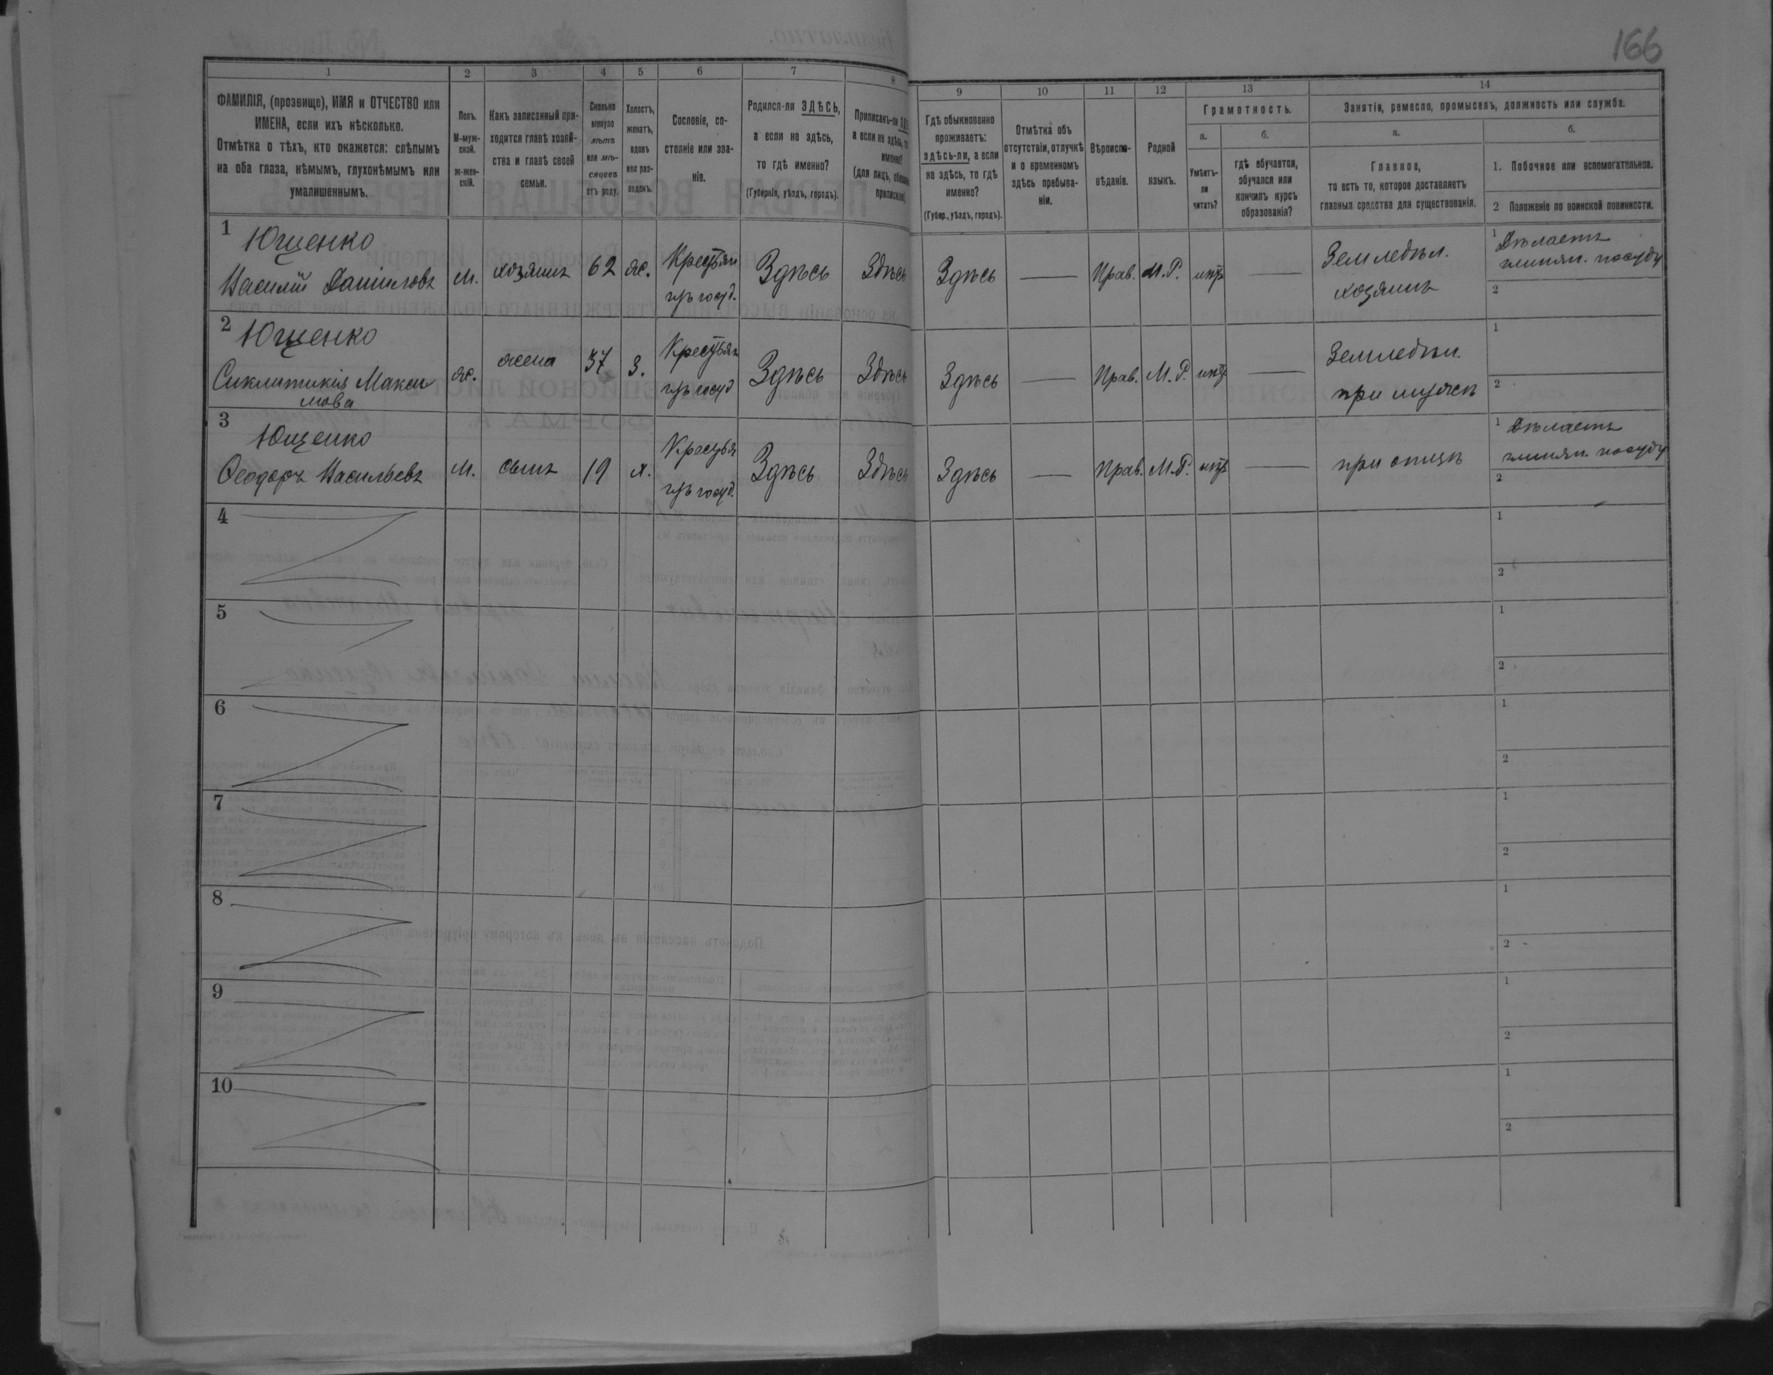 166
1 2 3 4 5 6 7 8 9 10 11 12 13 14
ФАМИЛІЯ, (прозвище), ИМЯ и ОТЧЕСТВО или
ИМЕНА, если ихъ нѣсколько.
Отмѣтка о тѣхъ, кто окажется: слѣпымъ
на оба глаза, нѣмымъ, глухонѣмымъ или
умалишеннымъ.
Полъ.
М-муж-
ской.
ж-жен-
скій.
Какъ записанный при-
ходится главѣ хозяй-
ства и главѣ своей
семьи.
Сколько
минуло
лѣтъ
или мѣ-
сяцевъ
отъ роду.
Холостъ,
женатъ,
вдовъ
или раз-
веденъ.
Сословіе, со-
стояніе или зва-
ніе.
Родился-ли ЗДѢСЬ,
а если не здѣсь,
то гдѣ именно?
(Губернія, уѣздъ, городъ).
Приписанъ-ли
а если не здѣсь,
именно?
(для лицъ,
Гдѣ обыкновенно
проживаетъ:
здѣсь-ли, а если
не здѣсь, то гдѣ
именно?
(Губер., уѣздъ, городъ).
Отмѣтка объ
отсутствіи, отлучкѣ
и о временномъ
здѣсь пребыва-
ніи.
Вѣроиспо-
вѣданіе.
Родной
языкъ.
Грамотность.
а.
Умѣетъ-
ли
читать?
б.
гдѣ обучается,
обучался или
кончилъ курсъ
образованія?
Занятіе, ремесло, промыселъ, должность или служба.
а.
Главное,
то есть то, которое доставляетъ
главныя средства для существованія.
б.
1. Побочное или вспомогательное.
2 Положеніе по воинской повинности.
1 Ющенко
Василій Даніиловъ М. хозяинъ 62 ж. Крестьян
изъ госуд. Здѣсь Здѣсь Здѣсь — Прав. М.Р. нѣтъ — Земледѣл.
хозяинъ
1 Дѣлаетъ
глинян. посуду
2
2 Ющенко
Синклитикія Макси
мова ж. жена 37 з. Крестьян
изъ госуд Здѣсь Здѣсь Здѣсь — Прав. М.Р. нѣтъ — Земледѣл.
при мужѣ
1
2
3 Ющенко
Ѳеодоръ Васильевъ М. сынъ 19 х. Крестья
изъ госуд. Здѣсь Здѣсь Здѣсь — Прав. М.Р. нѣтъ — при отцѣ
1 Дѣлаетъ
глинян. посуду
2
4
1
2
5
1
2
6
1
2
7
1
2
8
1
2
9
1
2
10
1
2